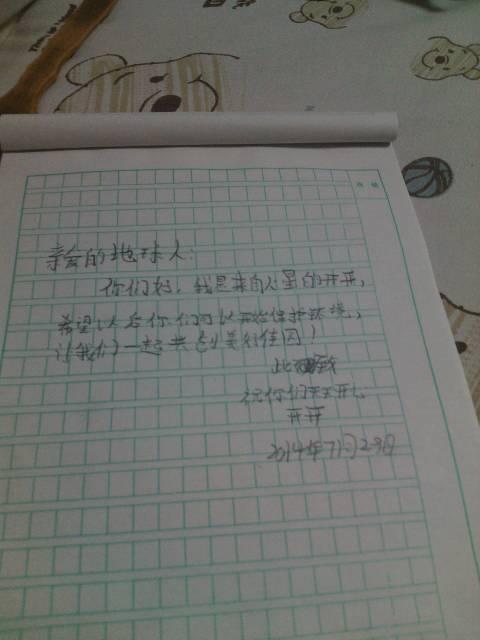 亲爱的地球人:
你们好,我是来自火星的开开,
希望以后你们可以开始保护环境,
让我们一起共创美好佳园!
此致
祝你们天天开心
开开
2014年7月29日